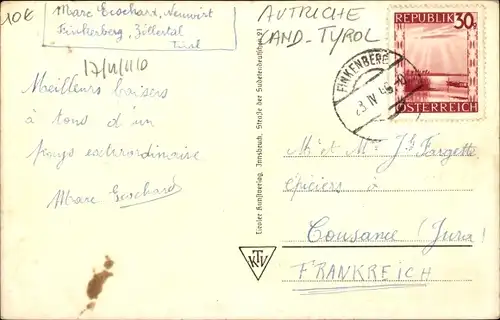 10€
Marc Eschard, Neuwirt
Finkenberg, Zillertal
Tirol
AUTRICHE
LAND-TYROL
REPUBLIK 30g
ÖSTERREICH
FINKENBERG
IV
Meilleurs baisers
à tous d'un
pays extraordinaire
Marc Eschard
Tiroler Kunstverlag, Innsbruck, Straße der Sudetendeutschen 21
KTV
Mr et Mme Js Fargette
épiciers à
Cousance (Jura)
FRANKREICH